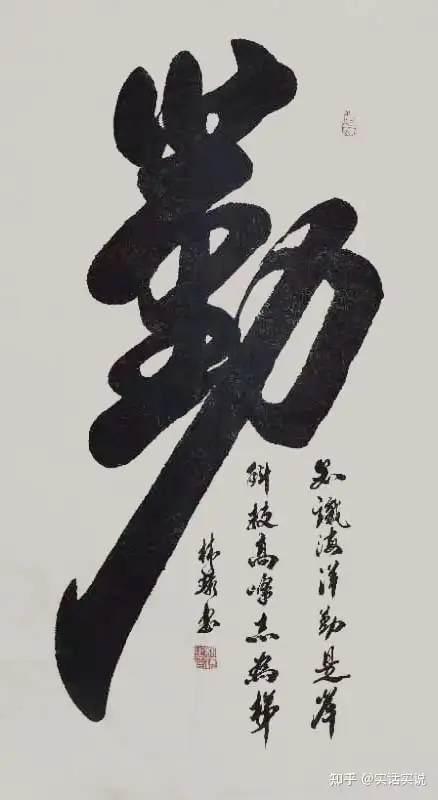 勤
知識海洋勤是岸
科技高峰志為梯
書
知乎 @实话实说